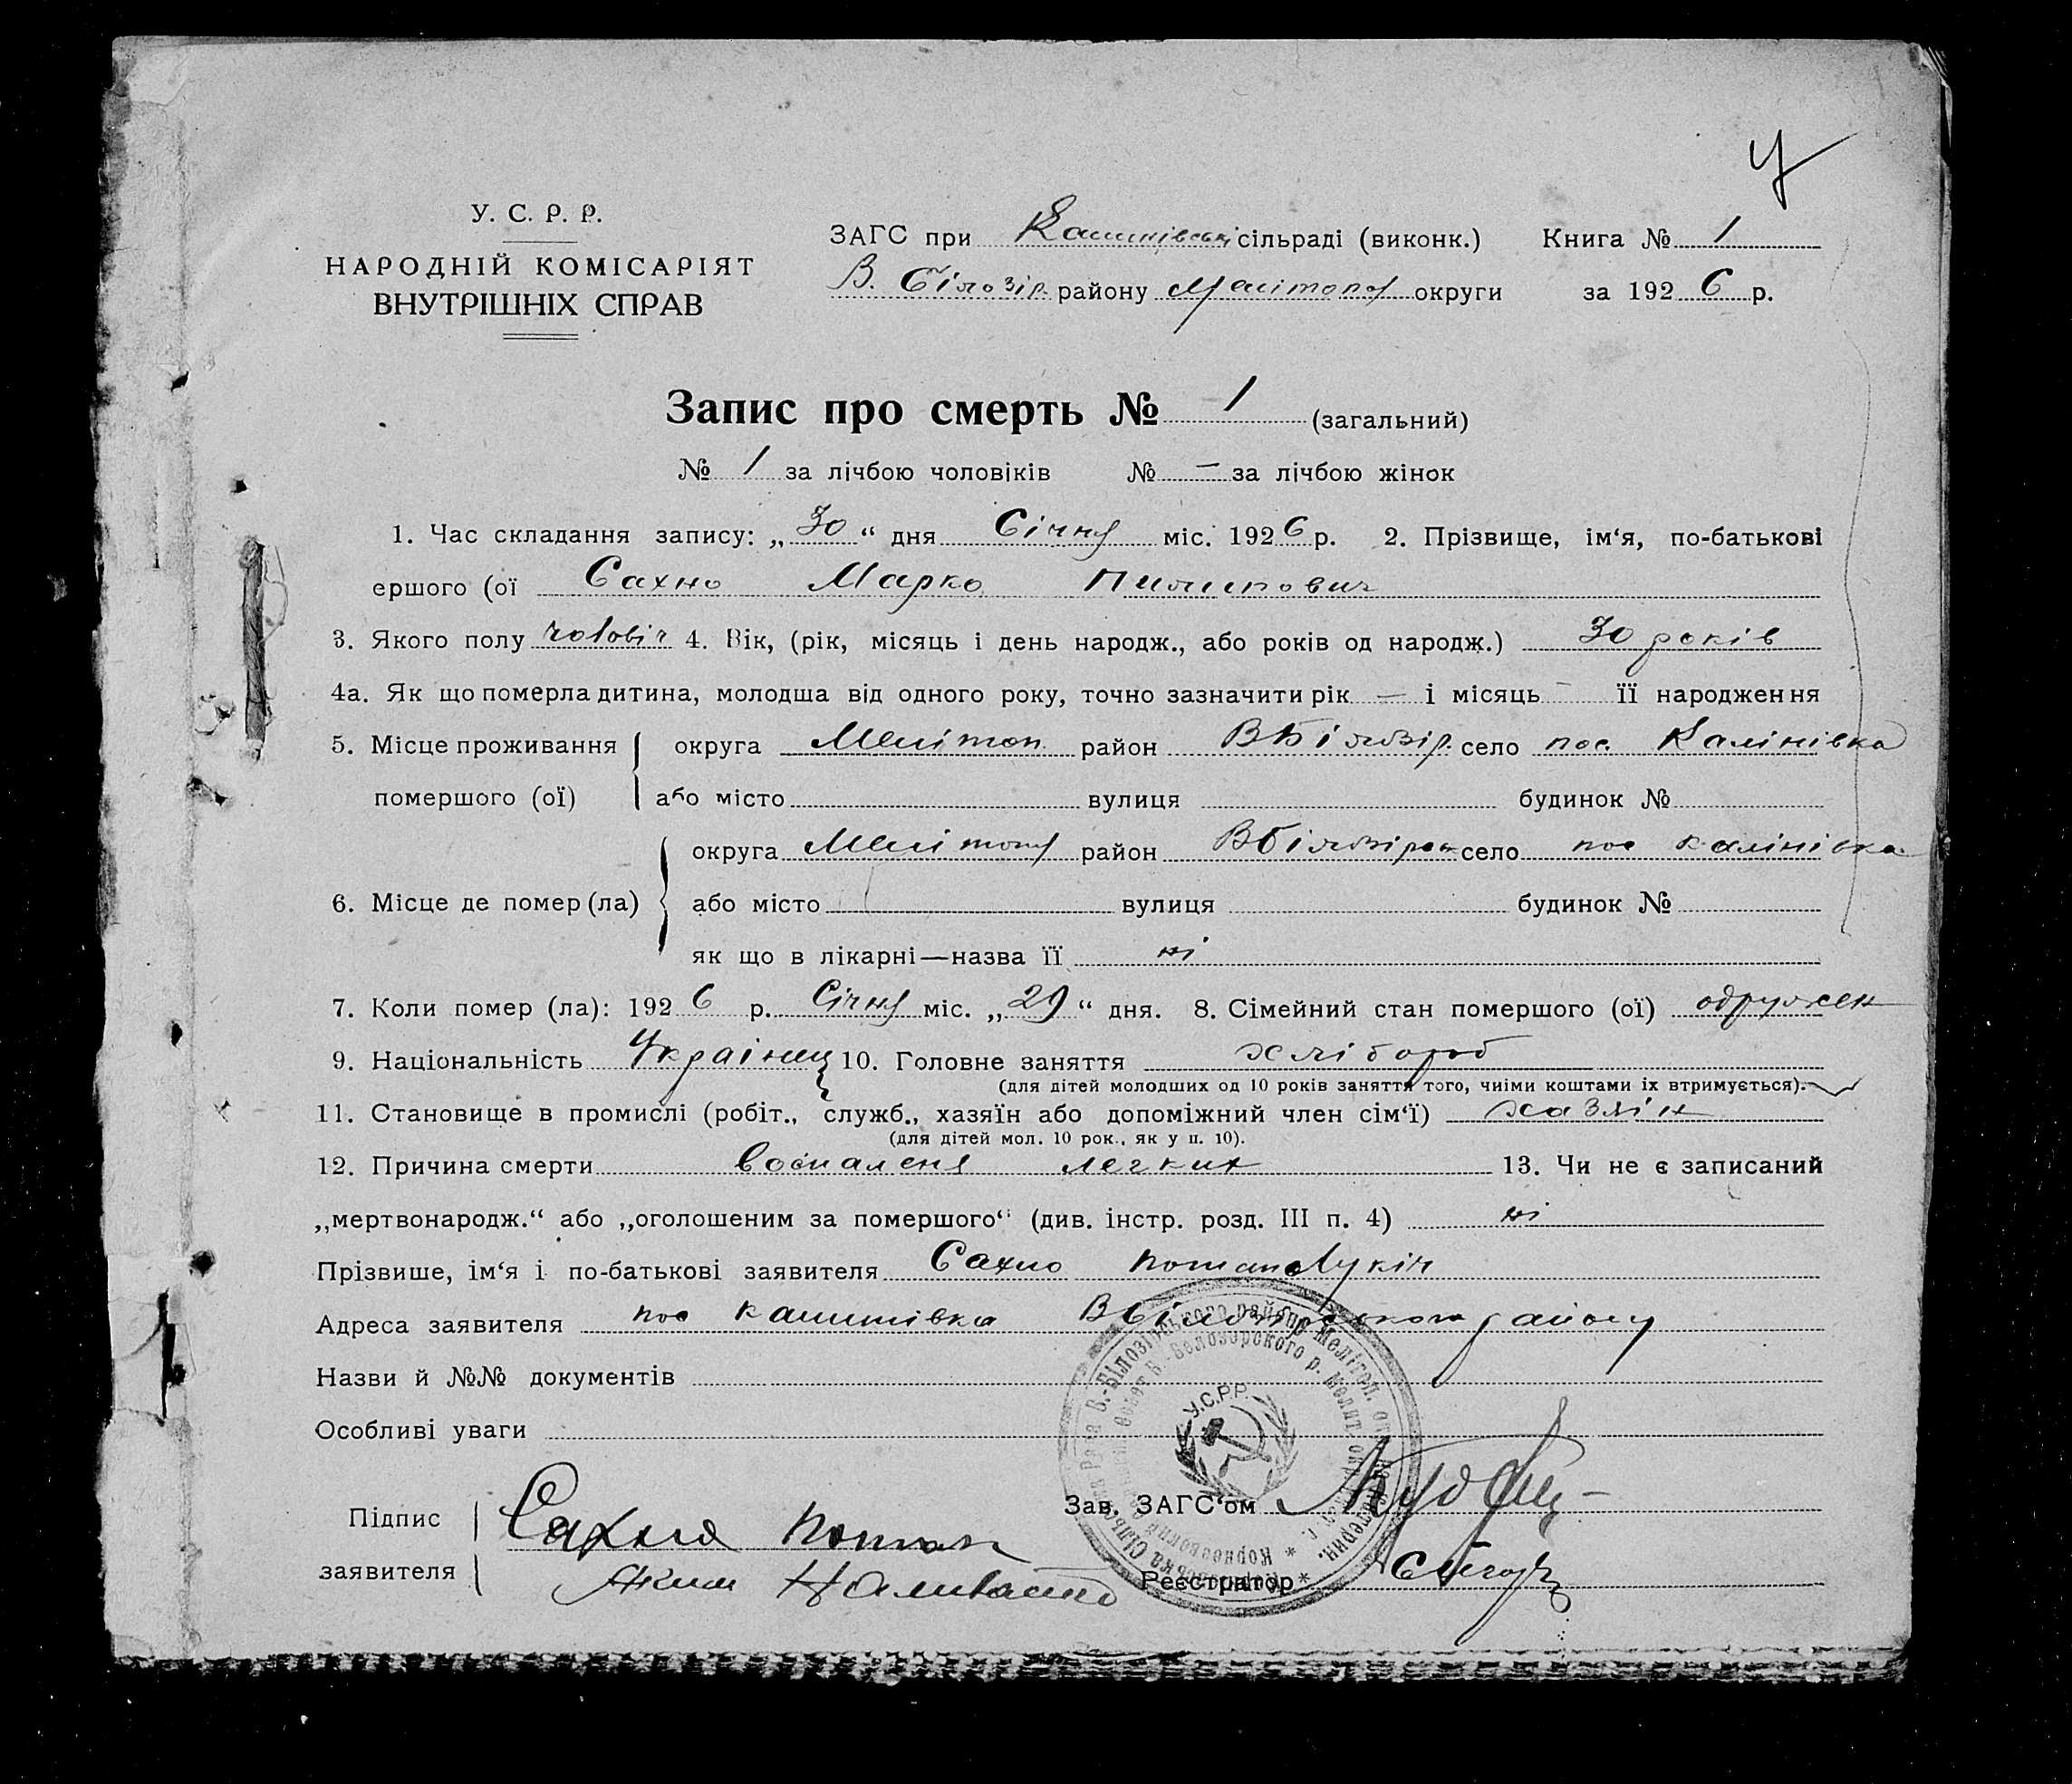 У. С. Р. Р.
НАРОДНІЙ КОМІСАРІЯТ
ВНУТРІШНІХ СПРАВ
ЗАГС при Калинівські сільраді (виконк.) Книга № 1
В. Білозір. району Мелітопол округи за 1926 р.
Запис про смерть № 1 (загальний)
№ 1 за лічбою чоловіків № — за лічбою жінок
1. Час складання запису: „30“ дня Січня міс. 1926 р. 2. Прізвище, ім‘я, по-батькові
ершого (ої Сахно Марко Пилипович
3. Якого полу чоловіч 4. Вік, (рік, місяць і день народж., або років од народж.) 30 років
4а. Як що померла дитина, молодша від одного року, точно зазначити рік — і місяць — її народження
5. Місце проживання округа Мелітоп район ВБілозір. село пос. Калінівка
помершого (ої) або місто вулиця будинок №
округа Мелітоп район ВБілозірск село пос Калінівка
6. Місце де помер (ла) або місто вулиця будинок №
як що в лікарні—назва її ні
7. Коли помер (ла): 1926 р. Січня міс. „29“ дня. 8. Сімейний стан помершого (ої) одружен
9. Національність Українец 10. Головне заняття хлібороб
(для дітей молодших од 10 років заняття того, чиїми коштами їх втримується).
11. Становище в промислі (робіт., служб., хазяїн або допоміжний член сім‘ї) хазяїн
(для дітей мол. 10 рок., як у п. 10).
12. Причина смерти воспаленя легких 13. Чи не є записаний
„мертвонародж.“ або „оголошеним за помершого“ (див. інстр. розд. III п. 4) ні
Прізвише, ім‘я і по-батькові заявителя Сахно Потап Лукіч
Адреса заявителя пос Калинівка ВБілозірського району
Назви й №№ документів
Особливі уваги
У.С.Р.Р.
Підпис Сахно Потап Зав. ЗАГС‘ом
заявителя Яким Реєстратор